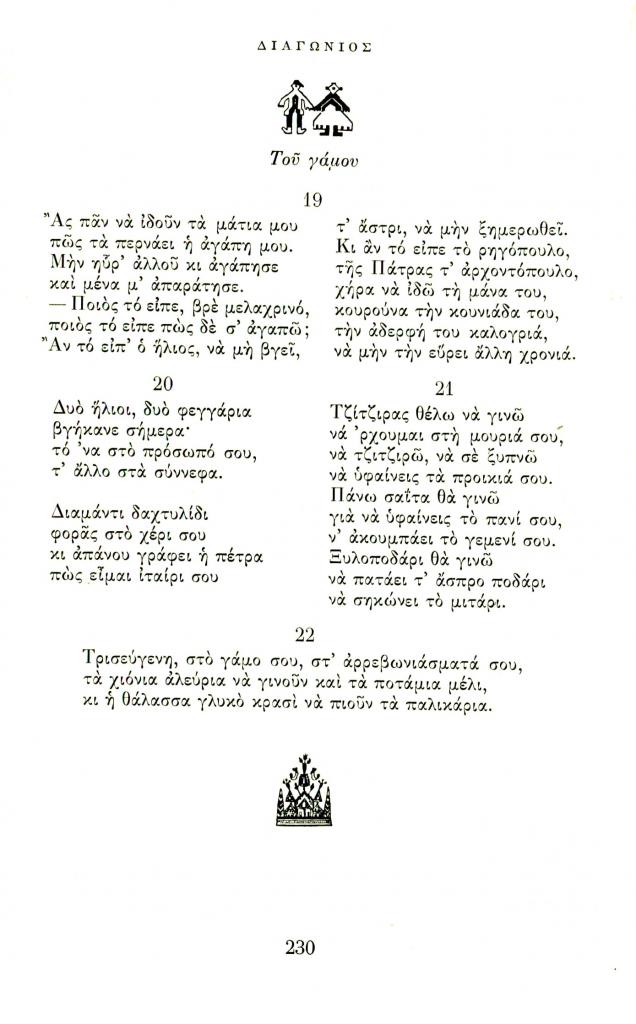 ΔΙΑΓΩΝΙΟΣ
Τοῦ γάμου
19
Ἂς πᾶν νὰ ἰδοῦν τὰ μάτια μου
πῶς τὰ περνάει ἡ ἀγάπη μου.
Μὴν ηὗρ' ἀλλοῦ κι ἀγάπησε
καὶ μένα μ' ἀπαράτησε.
— Ποιὸς τό εἶπε, βρὲ μελαχρινό,
ποιὸς τό εἶπε πὼς δὲ σ' ἀγαπῶ;
Ἂν τό εἶπ' ὁ ἥλιος, νὰ μὴ βγεῖ,
τ' ἄστρι, νὰ μὴν ξημερωθεῖ.
Κι ἂν τό εἶπε τὸ ρηγόπουλο,
τῆς Πάτρας τ' ἀρχοντόπουλο,
χήρα νὰ ἰδῶ τὴ μάνα του,
κουρούνα τὴν κουνιάδα του,
τὴν ἀδερφή του καλογριά,
νὰ μὴν τὴν εὕρει ἄλλη χρονιά.
20
Δυὸ ἥλιοι, δυὸ φεγγάρια
βγήκανε σήμερα·
τό 'να στὸ πρόσωπό σου,
τ' ἄλλο στὰ σύννεφα.
Διαμάντι δαχτυλίδι
φορᾶς στὸ χέρι σου
κι ἀπάνου γράφει ἡ πέτρα
πὼς εἶμαι ἰταίρι σου
21
Τζίτζιρας θέλω νὰ γινῶ
νά 'ρχουμαι στὴ μουριά σου,
νὰ τζιτζιρῶ, νὰ σὲ ξυπνῶ
νὰ ὑφαίνεις τὰ προικιά σου.
Πάνω σαΐτα θὰ γινῶ
γιὰ νὰ ὑφαίνεις τὸ πανί σου,
ν' ἀκουμπάει τὸ γεμενί σου.
Ξυλοποδάρι θὰ γινῶ
νὰ πατάει τ' ἄσπρο ποδάρι
νὰ σηκώνει τὸ μιτάρι.
22
Τρισεύγενη, στὸ γάμο σου, στ' ἀρρεβωνιάσματά σου,
τὰ χιόνια ἀλεύρια νὰ γινοῦν καὶ τὰ ποτάμια μέλι,
κι ἡ θάλασσα γλυκὸ κρασὶ νὰ πιοῦν τὰ παλικάρια.
230